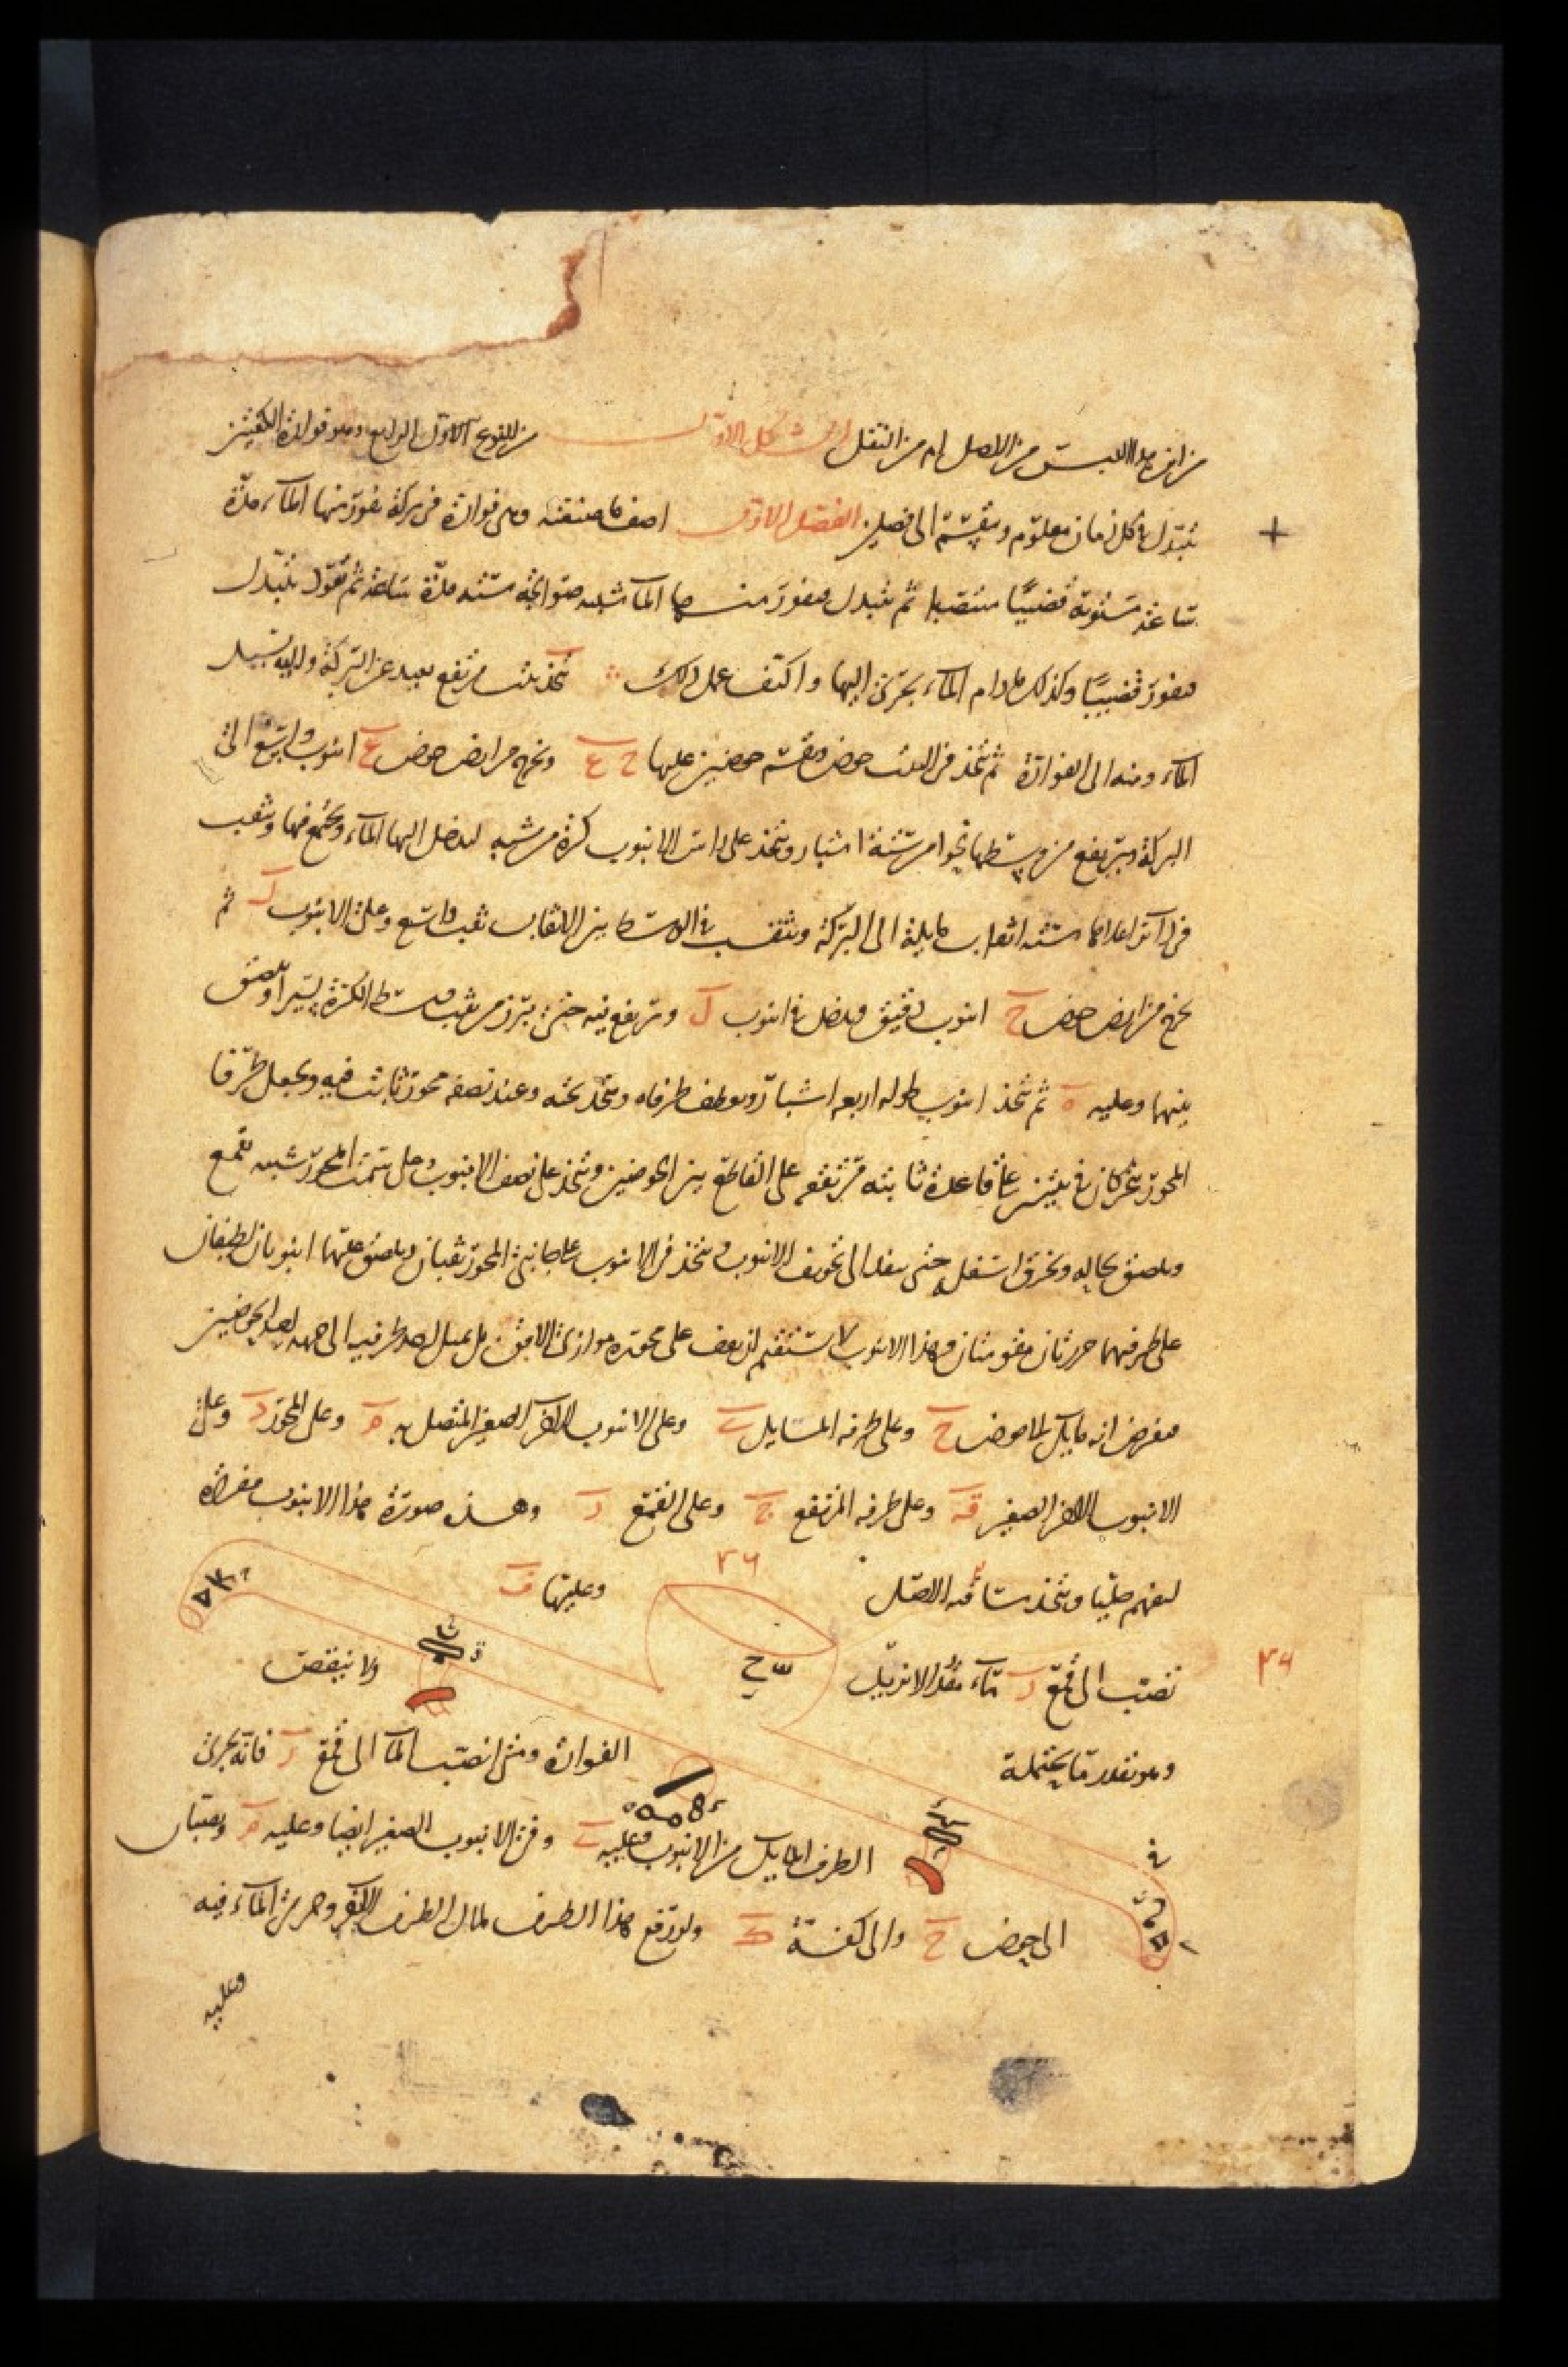 من اين هذا اللبس من الاصل ام من النقل الشكل الاول من النوع الرابع وهو فوارة الكفتين
تتبدل في كل زمان معلوم وينقسم الى فصلين الفصل الاول اصف ما صنعته وهي فوارة في بركة يفور منها الماء مدة
ساعة مستوية قضيبا منتصبا ثم تتبدل فيفور منها الماء شبيه ستة مدة ساعة ثم تتبدل
فيفور قضيبا وكذلك ما دام الماء يجري اليها واكشف عمل ذلك تتخذ بيت مرتفع بعيد عن البركة واليه يسيل
الماء ومنه الى الفوارة ثم تتخذ في البيت حوض ويقسم حوضين عليها ح ع ويخرج من ارض حوض ع انبوب واسع الى
البركة ويرتفع من وسطها نحوا من ستة اشبار ويتخذ على راس الانبوب كرة من شبه ليدخل اليها الماء ويجتمع فيها ويثقب
في دائر اعلاها ستة اثقاب مايلة الى البركة ويثقب في الوسط بين الاثقاب ثقب واسع وعلى الانبوب ل ثم
يخرج من ارض حوض ح انبوب دقيق ويدخل في انبوب ل ويرتفع فيه حتى يبرز من ثقب وسط الكرة يسيرا ويلصق
بينهما وعليه ه ثم تتخذ انبوب طوله اربعة اشبار ويعطف طرفاه ويتخذ تحته وعند نصفه محور ثابت فيه ويجعل طرفا
المحور يتحركان في بيتين على قاعدة ثابتة مرتفعة على القاطع بين الحوضين ويتخذ على نصف الانبوب وعلى سمت المحور شبيه بقمع
ويلصق بحاله ويخرق اسفله حتى ينفذ الى تجويف الانبوب ويتخذ في الانبوب على جانبي المحور ثقبان ويلصق عليهما انبوبان لطيفان
على طرفيهما خرزتان مقومتان وهذا الانبوب لا يستقيم ان يقف على محوره موازي الافق بل يميل احد طرفيه الى جهة احد الحوضين
فيفرض انه مايل الى حوض ح وعلى طرفه المايل ب وعلى الانبوب الاخر الصغير المتصل به م وعلى المحور د وعلى
الانبوب الاخر الصغير ق وعلى طرفه المرتفع ج وعلى القمع ر وهذه صورة هذا الانبوب مفردة
ليفهم جليا ويتخذ ساقية وعليها ف
٢٦
تنصب الى قمع ر ماء بقدر لا يزيد ولا ينقص
وهو بقدر ما يحتمله الفوارة ومتى انصب الماء الى قمع ر فانه يجري
الطرف المايل من الانبوب وعليه ب وفي الانبوب الصغير ايضا وعليه م
الى حوض ح والى كفة ط ولو رفع هذا الطرف لمال الطرف الاخر وجرى الماء فيه
وعليه